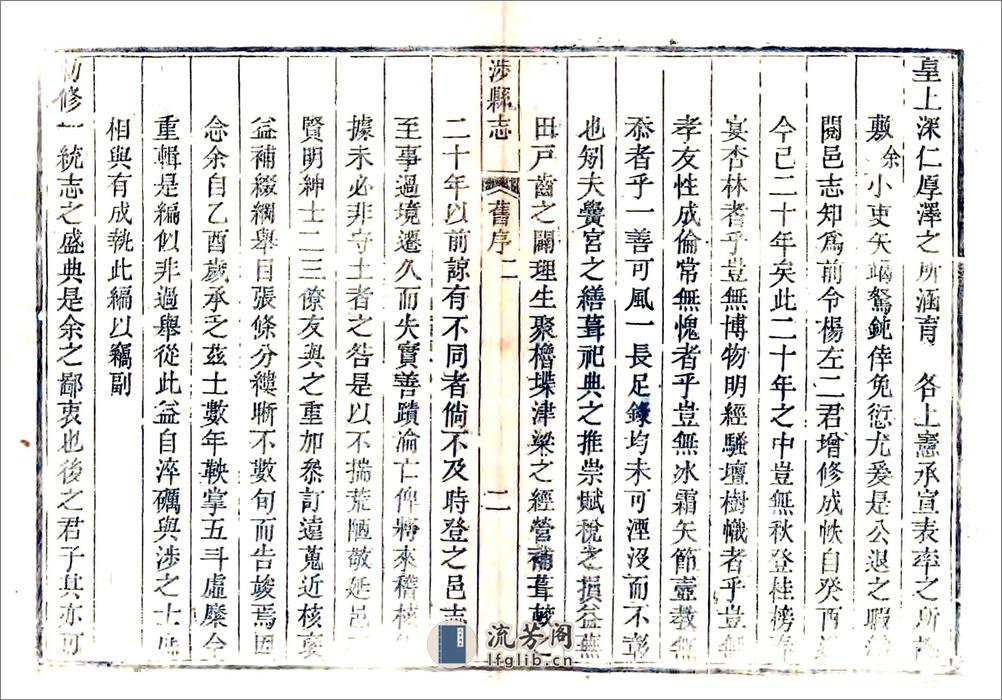 皇上深仁厚澤之所涵育　各上憲承宣表率之所
敷余小吏矢竭駑鈍倖免愆尤爰是公退之暇
閱邑志知爲前令楊左二君增修成帙自癸酉
今已二十年矣此二十年之中豈無秋登桂榜春
宴杏林者乎豈無博物明經騷壇樹幟者乎豈無
孝友性成倫常無愧者乎豈無冰霜矢節壼教無
忝者乎一善可風一長足錄均未可湮沒而不彰
也矧夫黌宮之繕葺祀典之推崇賦稅之損益蕪
田戶齒之闢理生聚櫓堞津梁之經營補葺較
涉縣志
舊序二
二
二十年以前諒有不同者倘不及時登之邑志
至事過境遷久而失實善蹟淪亡俾將來稽核
據未必非守土者之咎是以不揣荒陋敬延邑
賢明紳士二三僚友與之重加參訂遠蒐近核裒
益補綴綱舉目張條分縷晰不數旬而告竣焉因
念余自乙酉歲承乏茲土數年鞅掌五斗虛糜今
重輯是編似非過舉從此益自淬礪與涉之士
相與有成執此編以竊副
修一統志之盛典是余之鄙衷也後之君子其亦可
流芳阁
lfglib.cn